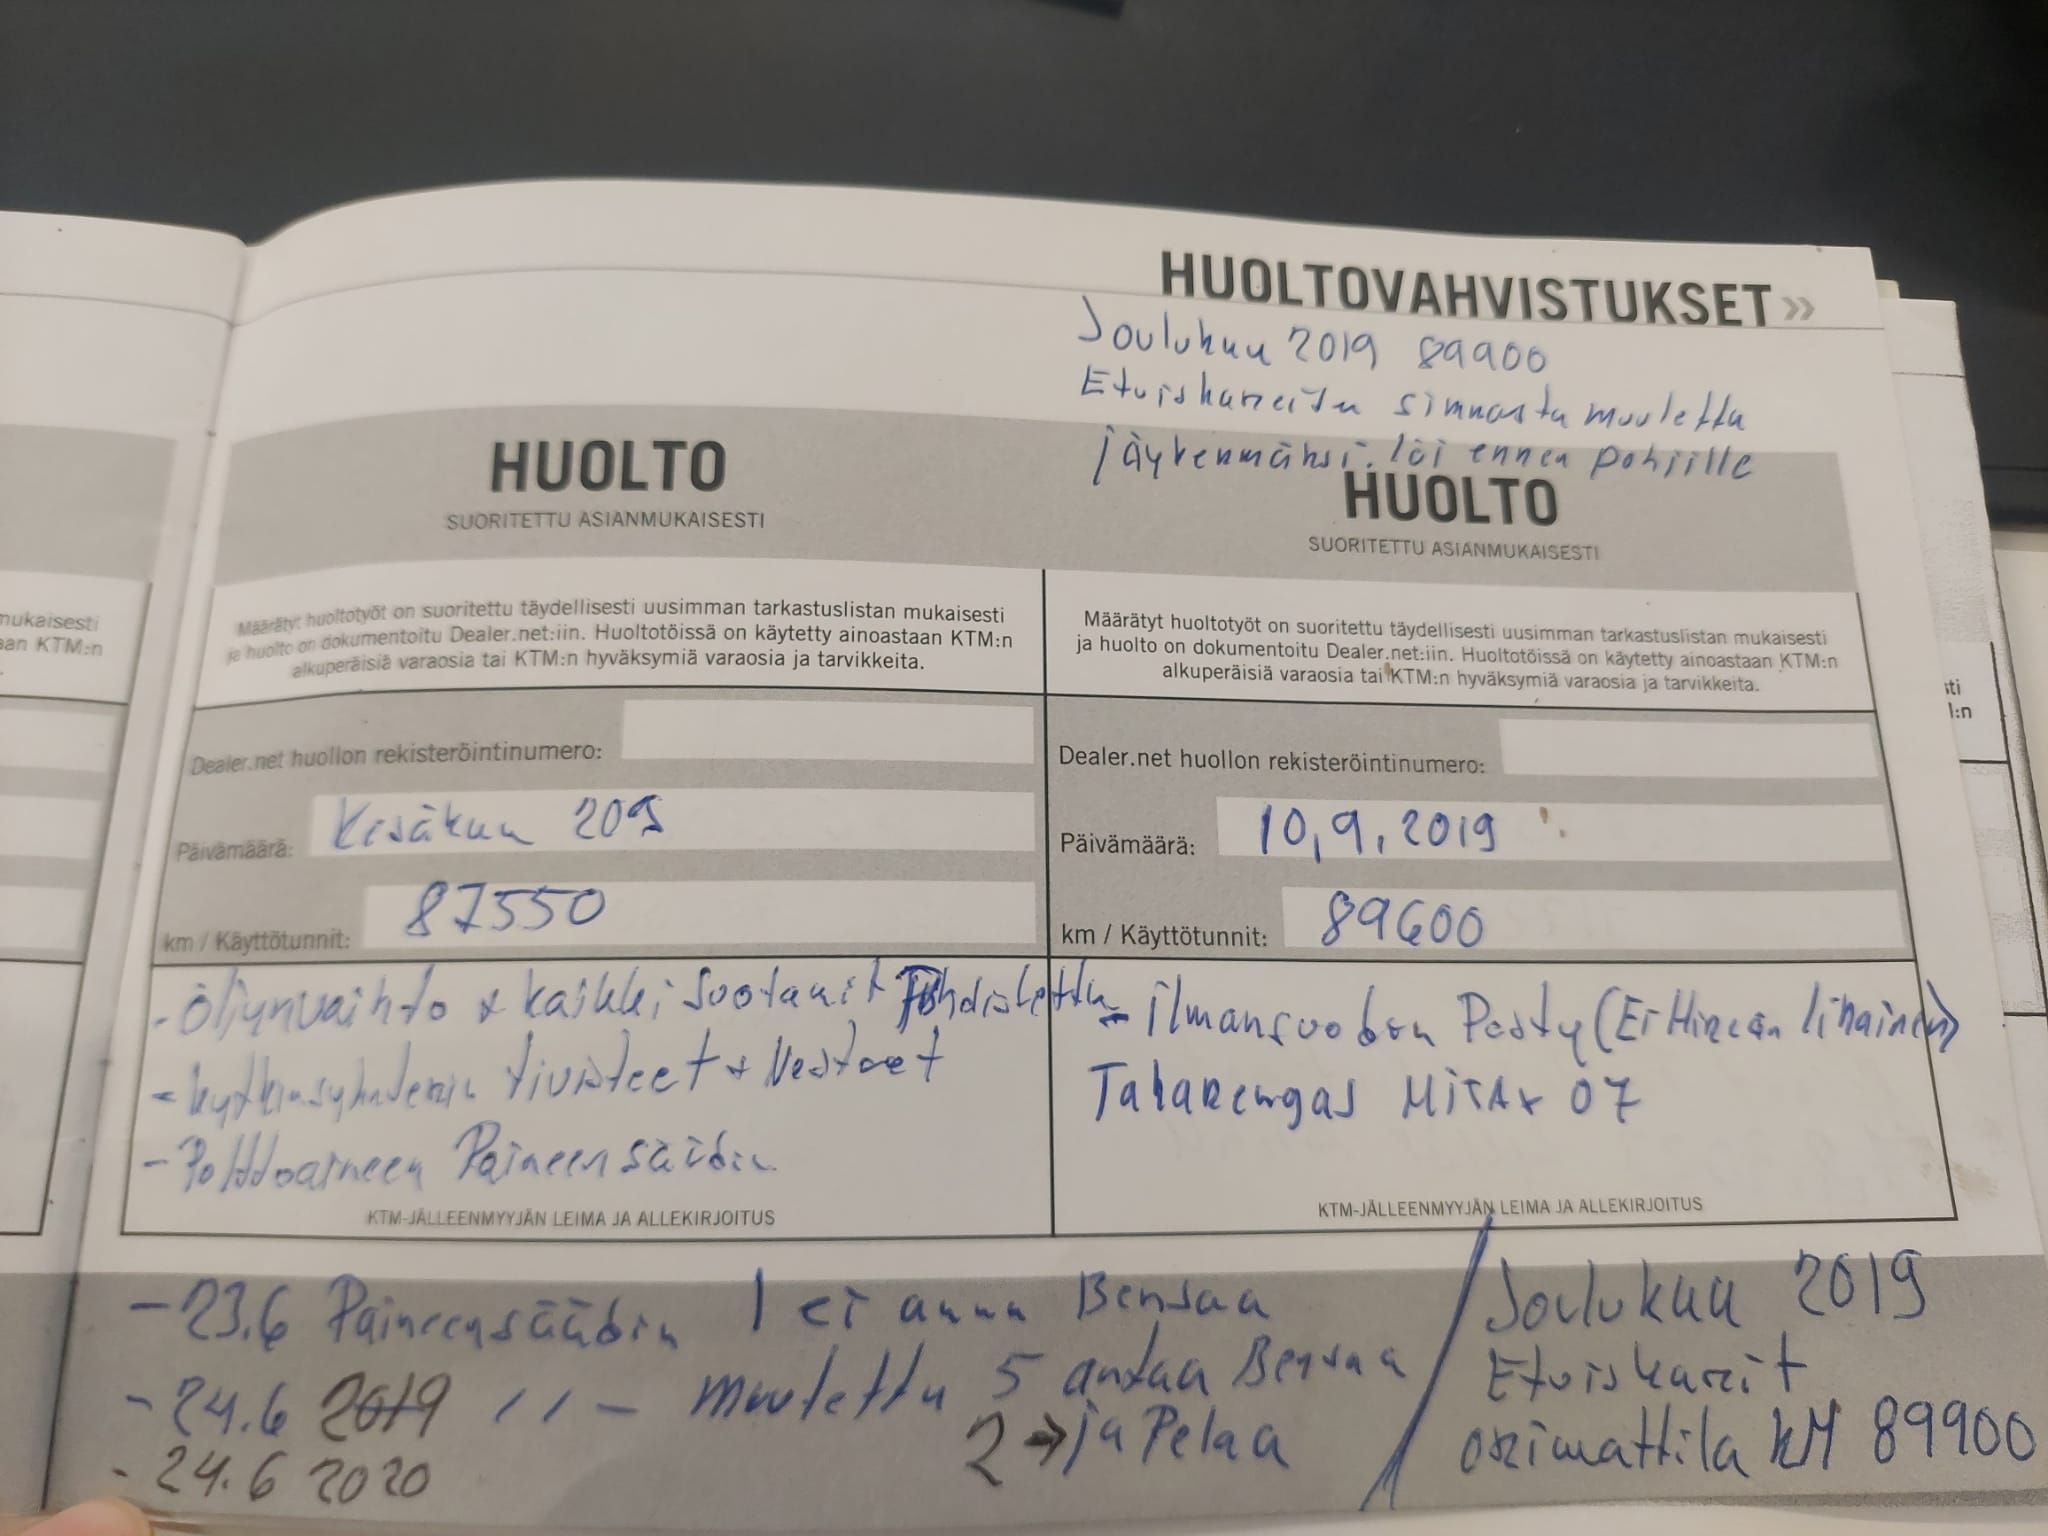 HUOLTOVAHVISTUKSET »
Joulukuu 2019 89900
Etuiskareita simnasta muutettu
jäykemmäksi. löi ennen pohjille
HUOLTO
SUORITETTU ASIANMUKAISESTI
Määrätyt huoltotyöt on suoritettu täydellisesti uusimman tarkastuslistan mukaisesti
ja huolto on dokumentoitu Dealer.net:iin. Huoltotöissä on käytetty ainoastaan KTM:n
alkuperäisiä varaosia tai KTM:n hyväksymiä varaosia ja tarvikkeita.
Dealer.net huollon rekisteröintinumero:
Päivämäärä: Kesäkuu 209
km / Käyttötunnit: 87550
- Öljynvaihto + kaikki suotanit Puhdistettu
- kytkinsylinterin tiivisteet + Nesteet
- Polttoaineen Paineensäädin
KTM-JÄLLEENMYYJÄN LEIMA JA ALLEKIRJOITUS
HUOLTO
SUORITETTU ASIANMUKAISESTI
Määrätyt huoltotyöt on suoritettu täydellisesti uusimman tarkastuslistan mukaisesti
ja huolto on dokumentoitu Dealer.net:iin. Huoltotöissä on käytetty ainoastaan KTM:n
alkuperäisiä varaosia tai KTM:n hyväksymiä varaosia ja tarvikkeita.
Dealer.net huollon rekisteröintinumero:
Päivämäärä: 10,9,2019
km / Käyttötunnit: 89600
- ilmansuodin Pesty (Ei Hireän likainen)
Takarengas MITAX 07
KTM-JÄLLEENMYYJÄN LEIMA JA ALLEKIRJOITUS
- 23.6 Paineensäädin 1 ei anna Bensaa
- 24.6 2019 ,, - muutettu 5 antaa Bensaa
2 → ja Pelaa
- 24.6 2020
Joulukuu 2019
Etuiskarit
orimattila kM 89900
mukaisesti
aan KTM:n
sti
l:n